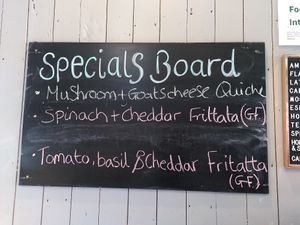 Specials Board
• Mushroom + Goatscheese Quiche
• Spinach + Cheddar Frittata (G.F)
• Tomato, basil & Cheddar Fritatta
(G.F.)
Fo
Int
AM
FLA
LAT
CA
MO
ES
HO
TE
SP
HO
& S
CA